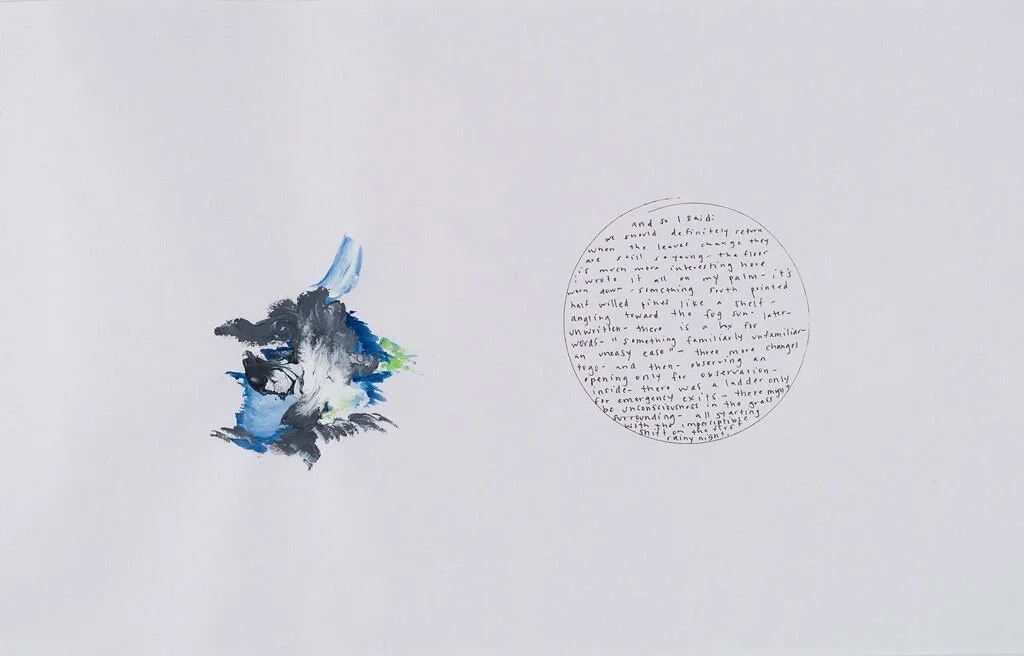 and so I said:
we should definitely return
when the leaves change they
are still so young - the floor
is much more interesting here
i wrote it all on my palm - it's
worn down - something south pointed
half willed pines like a shelf -
angling toward the fog sun - later -
unwritten - there is a hx for
words - "something familiarly unfamiliar -
an uneasy ease" - three more changes
to go - and then - observing an
opening only for observation -
inside - there was a ladder only
for emergency exits - there
be unconsciousness in the grass
surrounding - all starting
with the imperceptible
shift on the
rainy night.